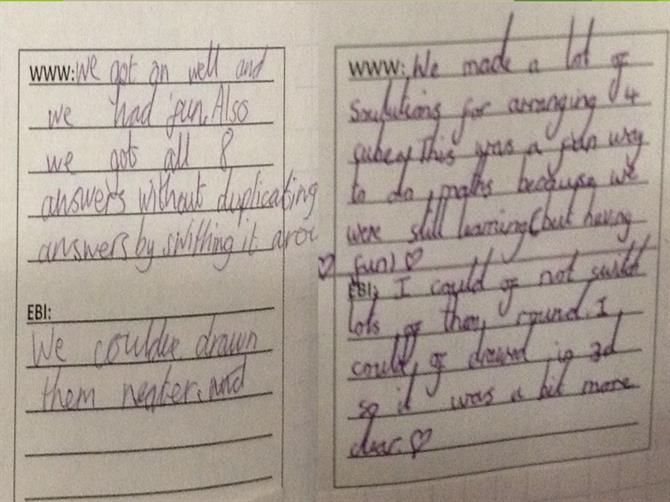 WWW: We got on well and
we had fun. Also
we got all 8
answers without duplicating
answers by swithing it arou
EBI:
We couldve drawn
them neater. and
WWW: We made a lot of
for arranging 4
cubes this was a fun way
to do maths because we
were still learning (but having
♡ fun) ♡
EBI: I could of not
lots of them round. I
could of drawed in 3d
so it was a bit more
clear. ♡